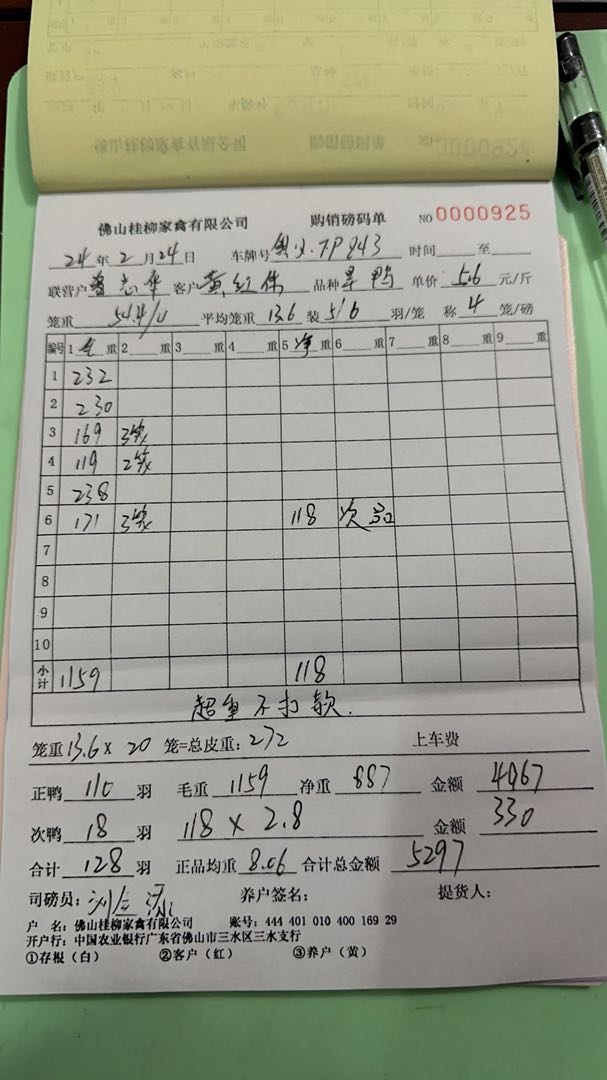 佛山桂柳家禽有限公司 购销磅码单 NO 0000925
24年2月24日 车牌号 TP843 时间 至
联营户 曾志华 客户 黄红伟 品种 旱鸭 单价 5.6 元/斤
笼重 54.4/4 平均笼重 13.6 装 5/6 羽/笼 称 4 笼/磅
编号 1 毛 重 2 重 3 重 4 重 5 净 重 6 重 7 重 8 重 9 重
1 232
2 230
3 169 3笼
4 119 2笼
5 238
6 171 3笼 118 次品
7
8
9
10
小计 1159 118
超重不扣款.
笼重 13.6 × 20 笼=总皮重: 272 上车费
正鸭 110 羽 毛重 1159 净重 887 金额 4967
次鸭 18 羽 118 × 2.8 金额 330
合计 128 羽 正品均重 8.06 合计总金额 5297
司磅员: 养户签名: 提货人:
户 名: 佛山桂柳家禽有限公司 账号: 444 401 010 400 169 29
开户行: 中国农业银行广东省佛山市三水区三水支行
①存根（白） ②客户（红） ③养户（黄）